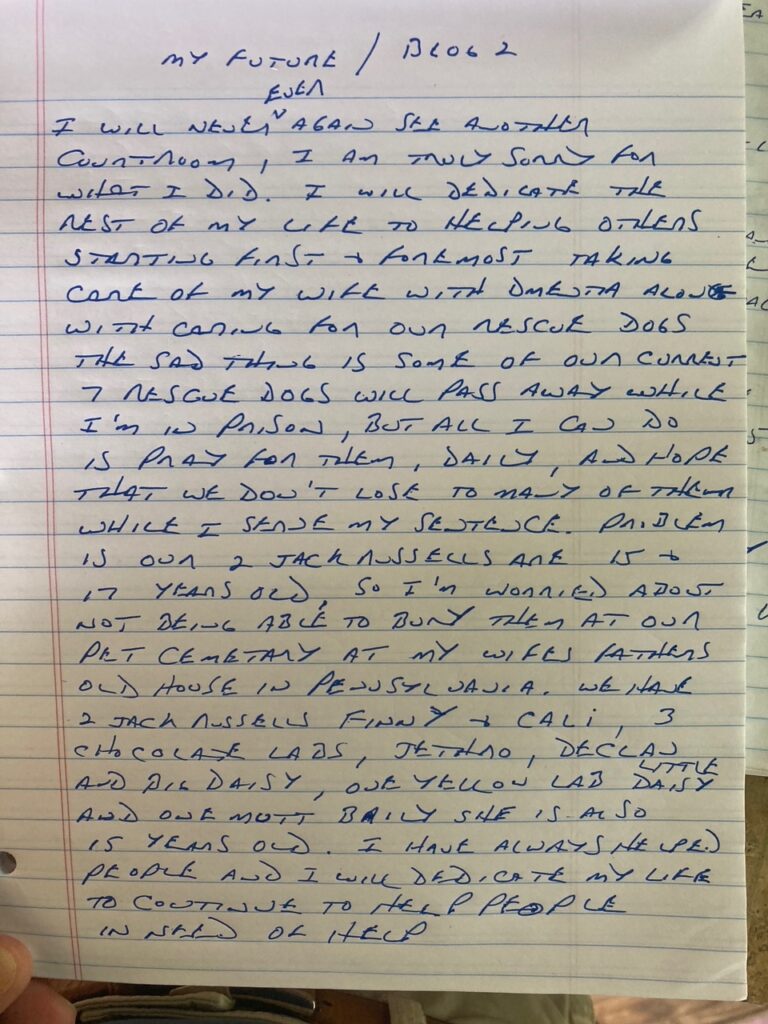 MY FUTURE / BLOG 2
EVER
I WILL NEVER ˅ AGAIN SEE ANOTHER
COURTROOM, I AM TRULY SORRY FOR
WHAT I DID. I WILL DEDICATE THE
REST OF MY LIFE TO HELPING OTHERS
STARTING FIRST + FOREMOST TAKING
CARE OF MY WIFE WITH DMENTIA ALONG
WITH CARING FOR OUR RESCUE DOGS
THE SAD THING IS SOME OF OUR CURRENT
7 RESCUE DOGS WILL PASS AWAY WHILE
I'M IN PRISON, BUT ALL I CAN DO
IS PRAY FOR THEM, DAILY, AND HOPE
THAT WE DON'T LOSE TO MANY OF THEM
WHILE I SERVE MY SENTENCE. PROBLEM
IS OUR 2 JACK RUSSELLS ARE 15 +
17 YEARS OLD, SO I'M WORRIED ABOUT
NOT BEING ABLE TO BURY THEM AT OUR
PET CEMETARY AT MY WIFES FATHERS
OLD HOUSE IN PENNSYLVANIA. WE HAVE
2 JACK RUSSELLS FINNY + CALI, 3
CHOCOLATE LABS, JETHRO, DECLAN
AND BIG DAISY, ONE YELLOW LAB LITTLE DAISY
AND ONE MUTT BAILY SHE IS ALSO
15 YEARS OLD. I HAVE ALWAYS HELPED
PEOPLE AND I WILL DEDICATE MY LIFE
TO CONTINUE TO HELP PEOPLE
IN NEED OF HELP